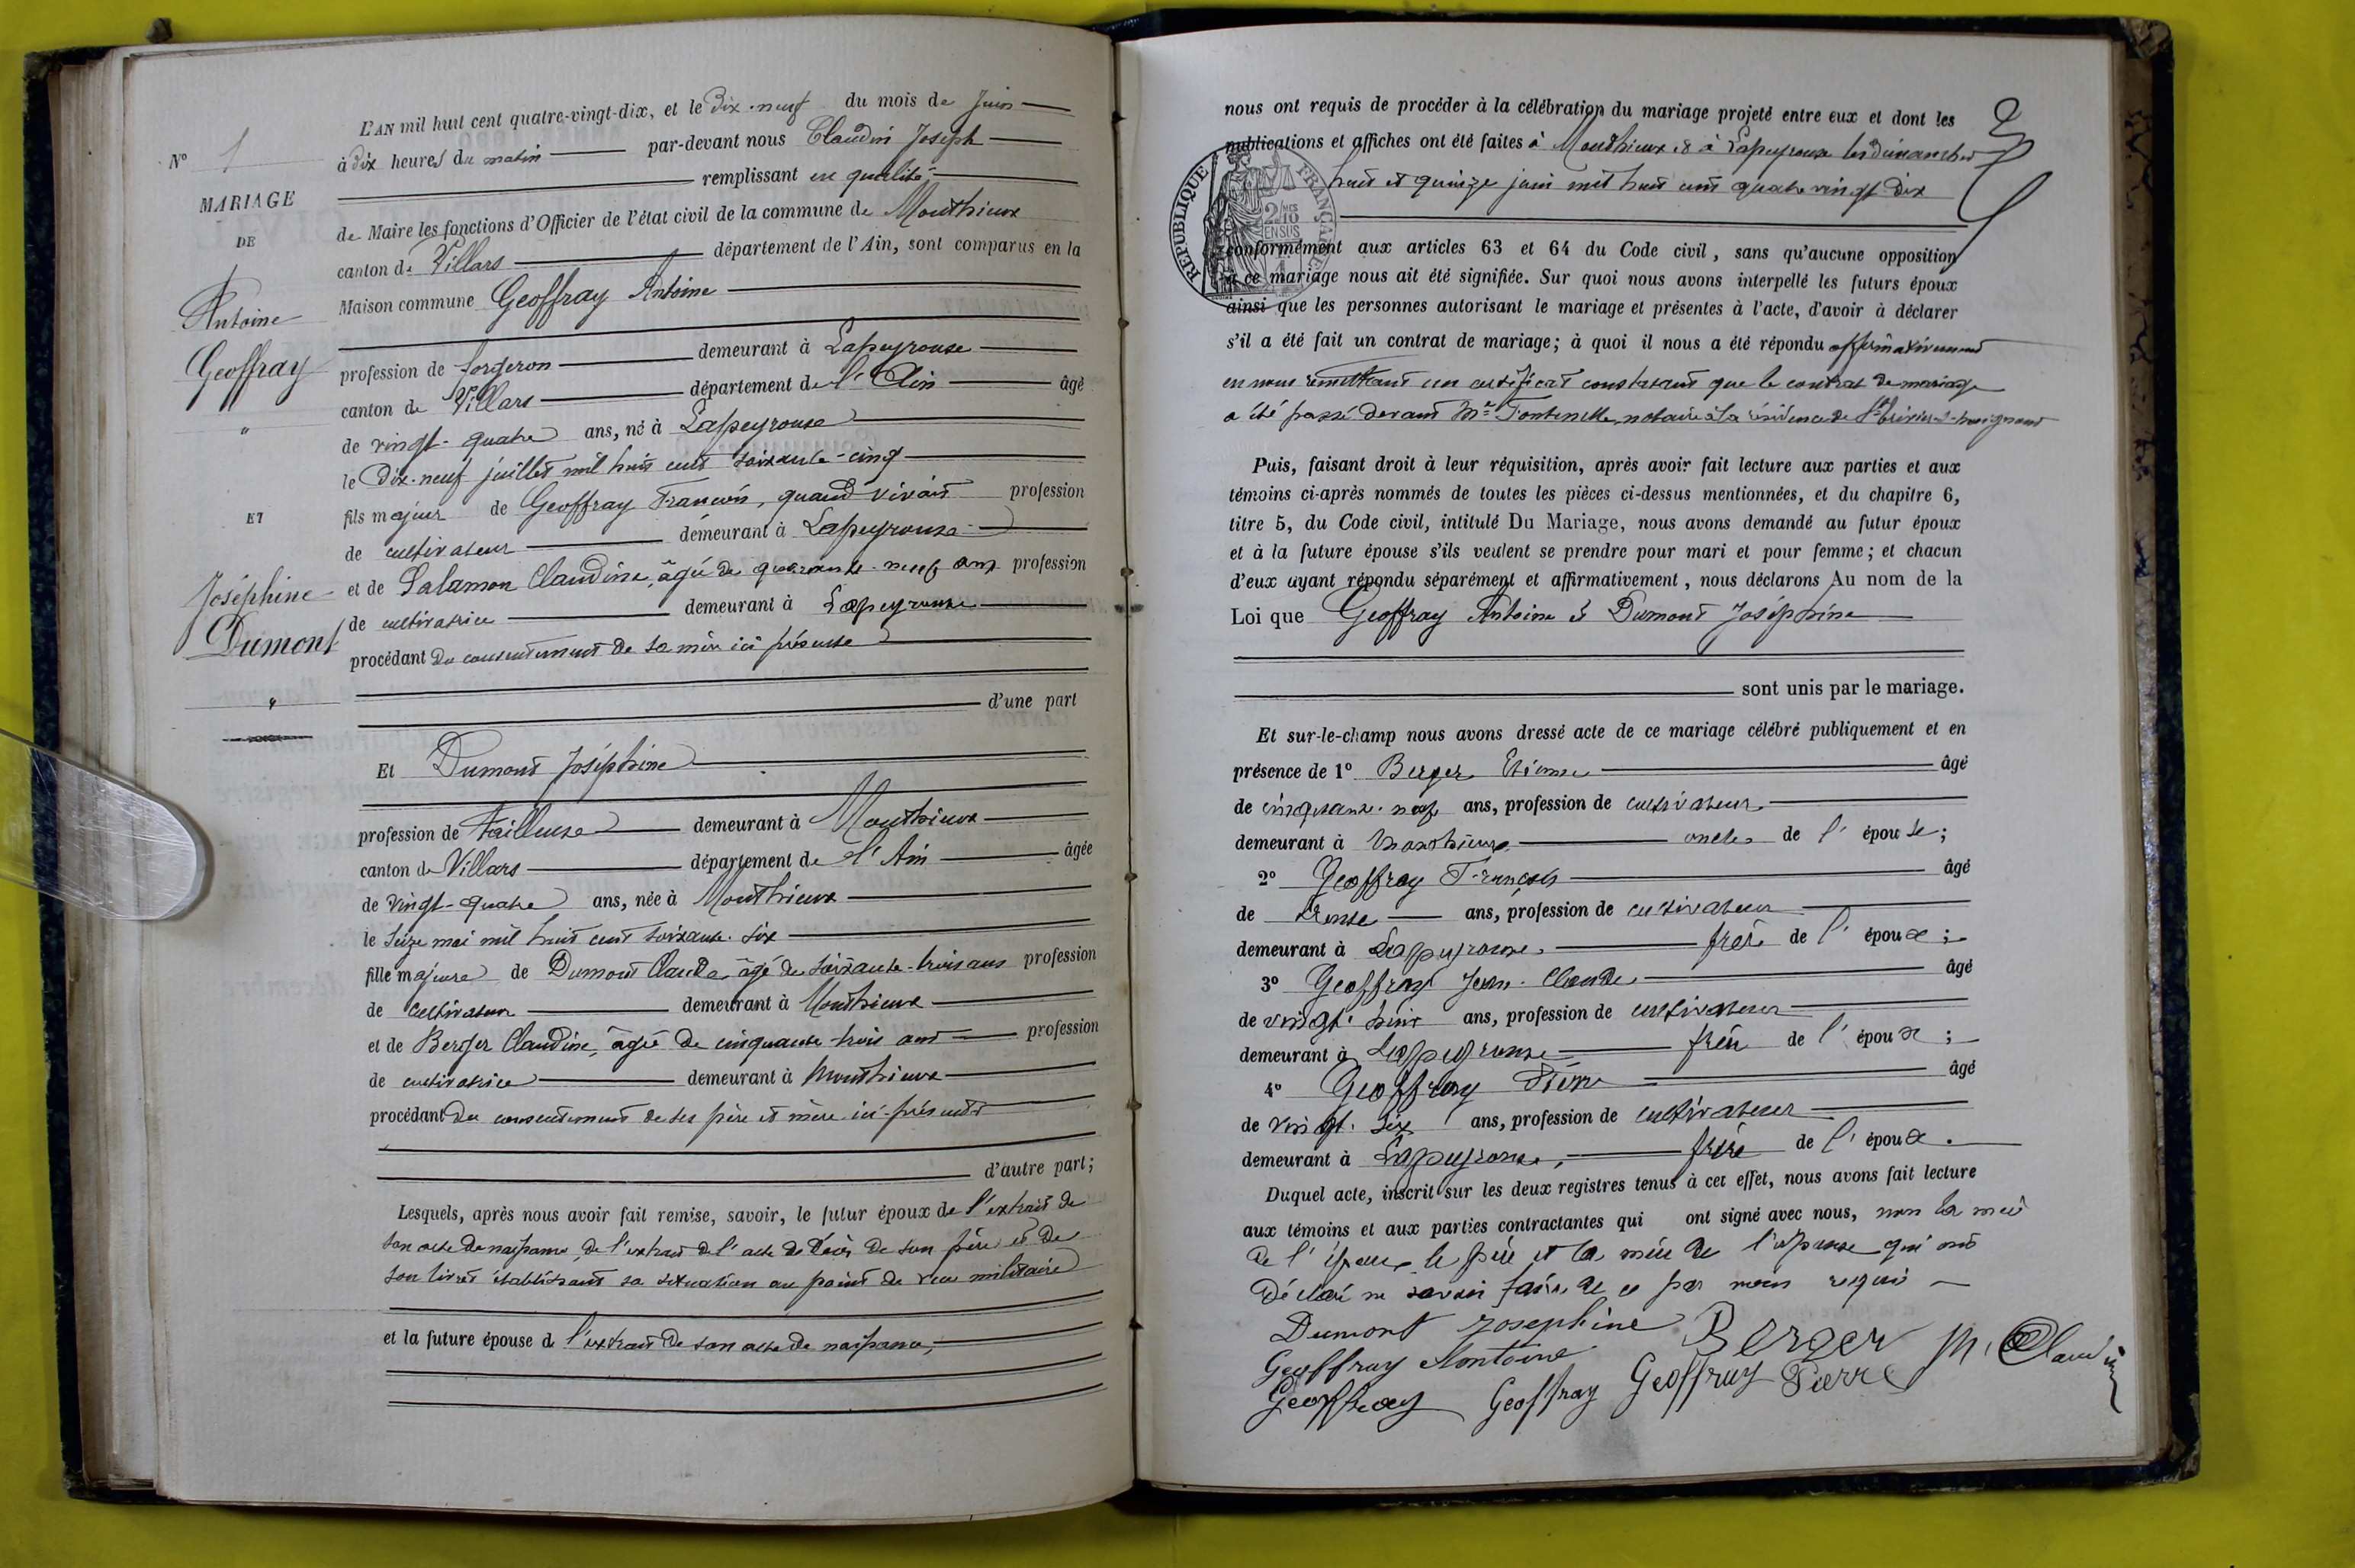 L'AN mil huit cent quatre-vingt-dix, et le Dix-neuf du mois de Juin
N° 1
à dix heures du matin par-devant nous Claudin Joseph
MARIAGE
remplissant en qualité
DE
de Maire les fonctions d'Officier de l'état civil de la commune de Monthieux
canton de Villars département de l'Ain, sont comparus en la
Antoine
Maison commune Geoffray Antoine
Geoffray
profession de forgeron demeurant à Lapeyrouse
canton de Villars département de l'Ain âgé
"
de vingt-quatre ans, né à Lapeyrouse
le Dix-neuf juillet mil huit cent soixante-cinq
ET
fils majeur de Geoffray François, quand vivait profession
de cultivateur demeurant à Lapeyrouse
Joséphine
et de Salamon Claudine, âgée de quarante-neuf ans profession
Dumont
de cultivatrice demeurant à Lapeyrouse
procédant du consentement de sa mère ici présente
"
d'une part
Et Dumont Joséphine
profession de Tailleuse demeurant à Monthieux
canton de Villars département de l'Ain âgée
de vingt-quatre ans, née à Monthieux
le Seize mai mil huit cent soixante-six
fille majeure de Dumont Claude âgé de soixante-trois ans profession
de cultivateur demeurant à Monthieux
et de Berger Claudine, âgée de cinquante-trois ans profession
de cultivatrice demeurant à Monthieux
procédant du consentement de ses père et mère ici présents
d'autre part;
Lesquels, après nous avoir fait remise, savoir, le futur époux de l'extrait de
son acte de naissance, de l'extrait de l'acte de décès de son père et de
son livret établissant sa situation au point de vue militaire
et la future épouse de l'extrait de son acte de naissance,
nous ont requis de procéder à la célébration du mariage projeté entre eux et dont les
publications et affiches ont été faites à Monthieux & à Lapeyrouse les dimanches
huit et quinze juin mil huit cent quatre vingt dix
RÉPUBLIQUE FRANÇAISE
conformément aux articles 63 et 64 du Code civil, sans qu'aucune opposition
à ce mariage nous ait été signifiée. Sur quoi nous avons interpellé les futurs époux
ainsi que les personnes autorisant le mariage et présentes à l'acte, d'avoir à déclarer
s'il a été fait un contrat de mariage; à quoi il nous a été répondu affirmativement
en nous remettant un certificat constatant que le contrat de mariage
a été passé devant Me Fontenelle, notaire à la résidence de St Trivier-s-moignans
Puis, faisant droit à leur réquisition, après avoir fait lecture aux parties et aux
témoins ci-après nommés de toutes les pièces ci-dessus mentionnées, et du chapitre 6,
titre 5, du Code civil, intitulé Du Mariage, nous avons demandé au futur époux
et à la future épouse s'ils veulent se prendre pour mari et pour femme; et chacun
d'eux ayant répondu séparément et affirmativement, nous déclarons Au nom de la
Loi que Geoffray Antoine & Dumont Joséphine
sont unis par le mariage.
Et sur-le-champ nous avons dressé acte de ce mariage célébré publiquement et en
présence de 1° Berger Etienne âgé
de cinquante-neuf ans, profession de cultivateur
demeurant à Monthieux oncle de l'épouse;
2° Geoffray François âgé
de trente ans, profession de cultivateur
demeurant à Lapeyrouse, frère de l'époux;
3° Geoffray Jean-Claude âgé
de vingt-huit ans, profession de cultivateur
demeurant à Lapeyrouse frère de l'époux;
4° Geoffray Pierre âgé
de vingt-six ans, profession de cultivateur
demeurant à Lapeyrouse, frère de l'époux.
Duquel acte, inscrit sur les deux registres tenus à cet effet, nous avons fait lecture
aux témoins et aux parties contractantes qui ont signé avec nous, non la mère
de l'époux, le père et la mère de l'épouse qui ont
déclaré ne savoir faire de ce par nous requis
Dumont Josephine Berger M. Claudin
Geoffray Antoine Geoffray Pierre
Geoffray Geoffray